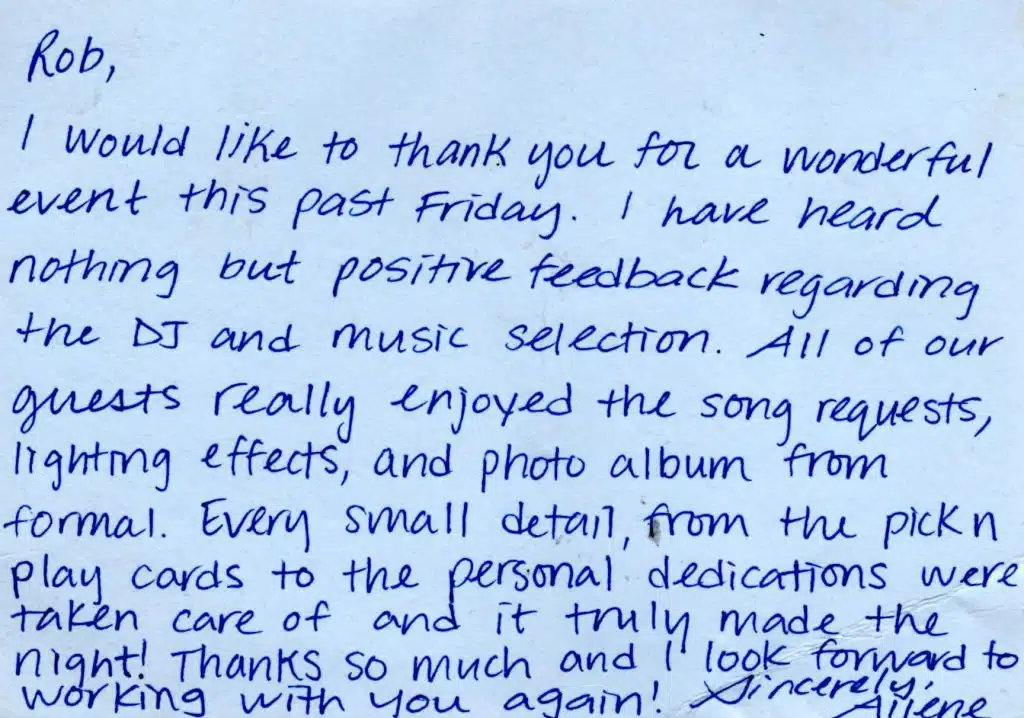 Rob,
I would like to thank you for a wonderful
event this past Friday. I have heard
nothing but positive feedback regarding
the DJ and music selection. All of our
guests really enjoyed the song requests,
lighting effects, and photo album from
formal. Every small detail, from the pick n
play cards to the personal dedications were
taken care of and it truly made the
night! Thanks so much and I look forward to
working with you again! Sincerely,
Ailene